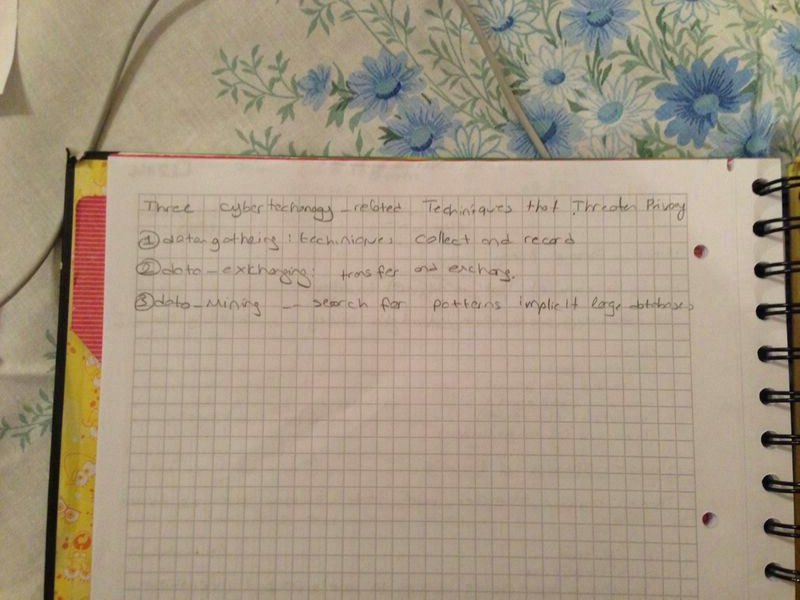 Three cybertechonogy _related Techiniques that Threaten Privacy
① data_gatheing : techiniques collect and record
② data _ exkhanging : transfer and exchang.
③ data _ Mining _ search for patterns implicit large databases